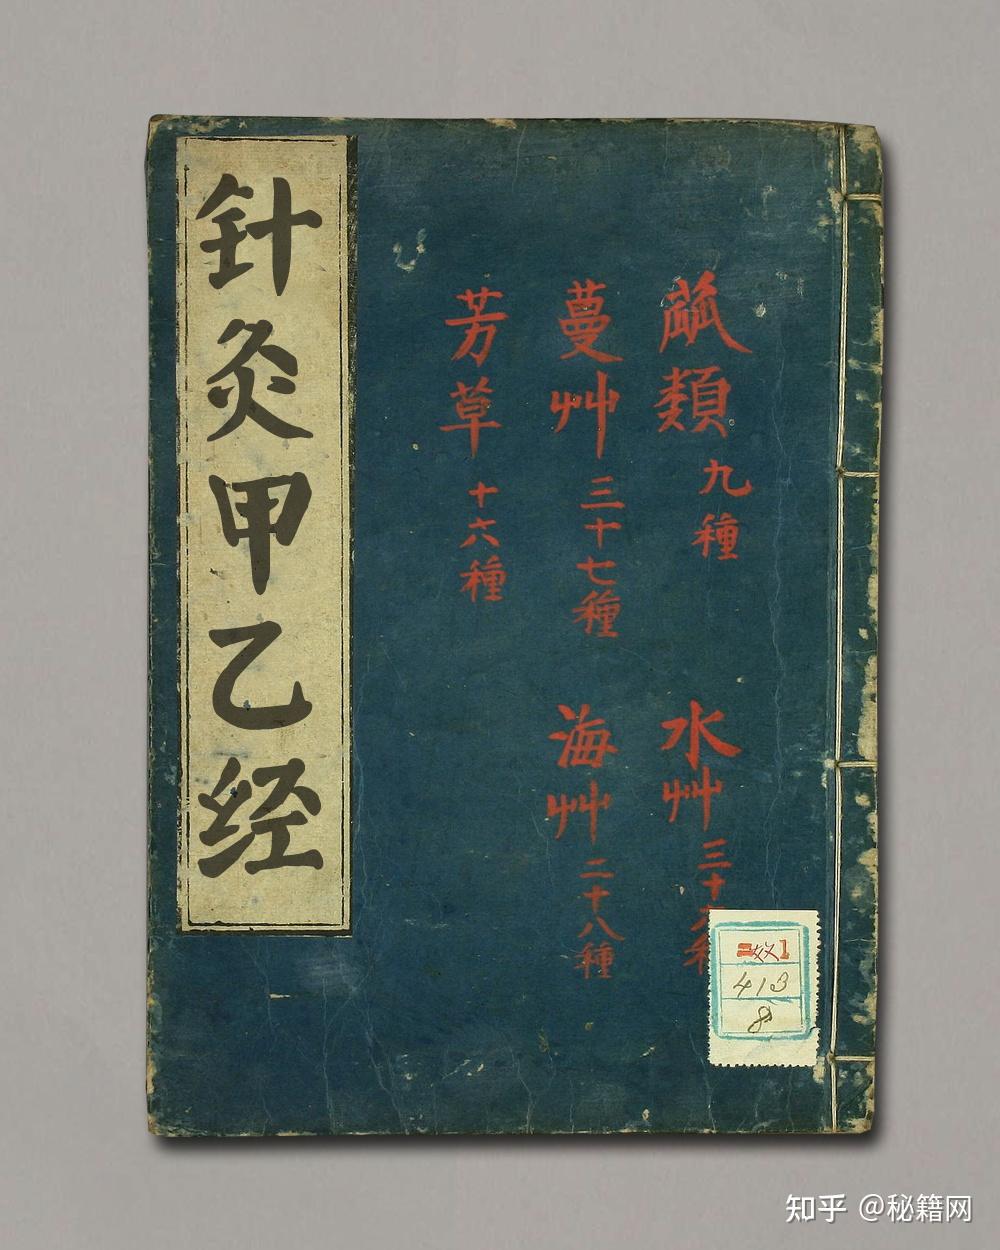 针灸甲乙经
蓏類九種
水艸三十
蔓艸三十七種
海艸二十八種
芳草十六種
413
8
知乎 @秘籍网